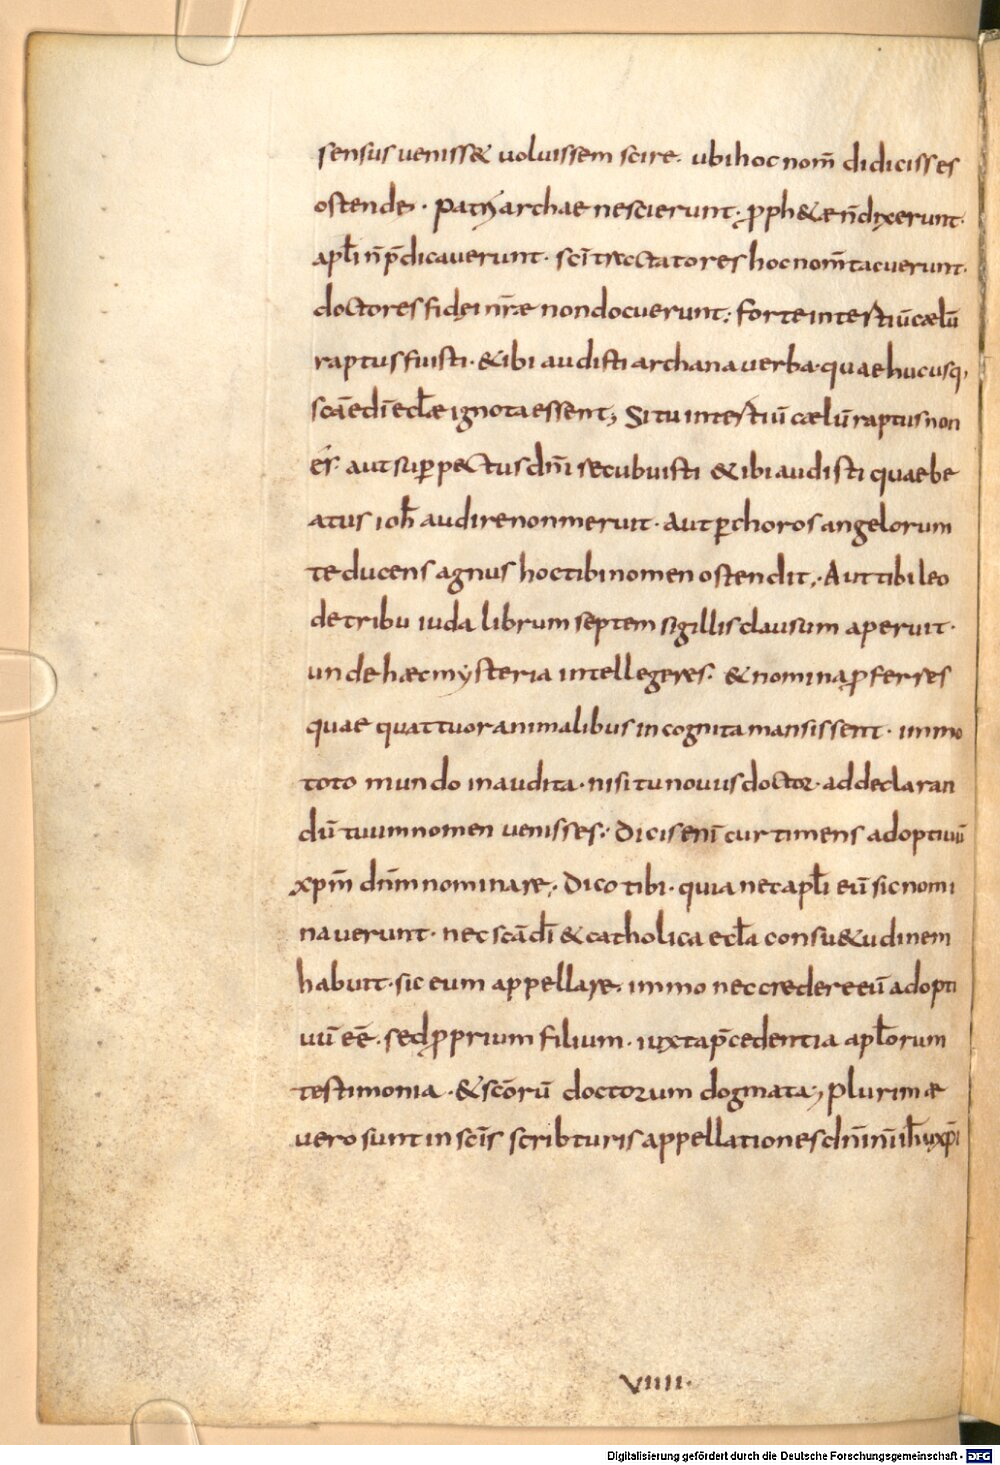 sensus ueniss& uoluissem scire. ubi hoc nom̄ didicisses
ostende. Patryarchae nescierunt. ꝓph&ae n̄ dixerunt.
apl̄i n̄ p̄dicauerunt. sc̄i tractatores hoc nom̄ tacuerunt.
doctores fidei nr̄ae non docuerunt; forte in tertiū caelū
raptus fuisti. & ibi audisti archana uerba. quae hucusq;
sc̄ae dī ecl̄ae ignota essent; Si tu in tertiū caelū raptus non
es. aut suꝑ pectus dn̄i recubuisti & ibi audisti quae be
atus ioh̄ audire non meruit. aut ꝑ choros angelorum
te ducens agnus hoc tibi nomen ostendit; Aut tibi leo
de tribu iuda librum septem sigillis clausum aperuit.
unde haec mysteria intellegeres. & nomina ꝓferres
quae quattuor animalibus incognita mansissent. immo
toto mundo inaudita. nisi tu nouus doctor. ad declaran
dū tuum nomen uenisses; Dicis enī cur timens adoptiuū
xp̄m dn̄m nominare; Dico tibi. quia nec apl̄i eū sic nomi
nauerunt. nec sc̄a dī & catholica ecl̄a consu&udinem
habuit. sic eum appellare. immo nec credere eū adopti
uū eē. sed ꝓprium filium. iuxta p̄cedentia apl̄orum
testimonia. & sc̄orū doctorum dogmata; Plurimae
uero sunt in sc̄is scribturis appellationes dn̄i nī ih̄u xp̄i
VIIII.
Digitalisierung gefördert durch die Deutsche Forschungsgemeinschaft - DFG